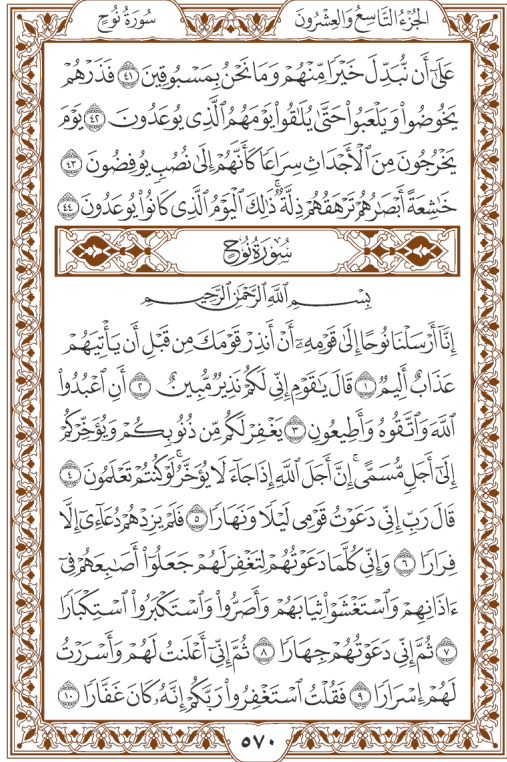 الجُزْءُ التَّاسِعُ وَالعِشْرُونَ
سُورَةُ نُوحٍ
عَلَىٰٓ أَن نُّبَدِّلَ خَيْرًا مِّنْهُمْ وَمَا نَحْنُ بِمَسْبُوقِينَ ٤١ فَذَرْهُمْ
يَخُوضُوا۟ وَيَلْعَبُوا۟ حَتَّىٰ يُلَٰقُوا۟ يَوْمَهُمُ ٱلَّذِى يُوعَدُونَ ٤٢ يَوْمَ
يَخْرُجُونَ مِنَ ٱلْأَجْدَاثِ سِرَاعًا كَأَنَّهُمْ إِلَىٰ نُصُبٍ يُوفِضُونَ ٤٣
خَٰشِعَةً أَبْصَٰرُهُمْ تَرْهَقُهُمْ ذِلَّةٌ ۚ ذَٰلِكَ ٱلْيَوْمُ ٱلَّذِى كَانُوا۟ يُوعَدُونَ ٤٤
سُورَةُ نُوحٍ
بِسْمِ ٱللَّهِ ٱلرَّحْمَٰنِ ٱلرَّحِيمِ
إِنَّآ أَرْسَلْنَا نُوحًا إِلَىٰ قَوْمِهِۦٓ أَنْ أَنذِرْ قَوْمَكَ مِن قَبْلِ أَن يَأْتِيَهُمْ
عَذَابٌ أَلِيمٌ ١ قَالَ يَٰقَوْمِ إِنِّى لَكُمْ نَذِيرٌ مُّبِينٌ ٢ أَنِ ٱعْبُدُوا۟
ٱللَّهَ وَٱتَّقُوهُ وَأَطِيعُونِ ٣ يَغْفِرْ لَكُم مِّن ذُنُوبِكُمْ وَيُؤَخِّرْكُمْ
إِلَىٰٓ أَجَلٍ مُّسَمًّى ۚ إِنَّ أَجَلَ ٱللَّهِ إِذَا جَآءَ لَا يُؤَخَّرُ ۖ لَوْ كُنتُمْ تَعْلَمُونَ ٤
قَالَ رَبِّ إِنِّى دَعَوْتُ قَوْمِى لَيْلًا وَنَهَارًا ٥ فَلَمْ يَزِدْهُمْ دُعَآءِىٓ إِلَّا
فِرَارًا ٦ وَإِنِّى كُلَّمَا دَعَوْتُهُمْ لِتَغْفِرَ لَهُمْ جَعَلُوٓا۟ أَصَٰبِعَهُمْ فِىٓ
ءَاذَانِهِمْ وَٱسْتَغْشَوْا۟ ثِيَابَهُمْ وَأَصَرُّوا۟ وَٱسْتَكْبَرُوا۟ ٱسْتِكْبَارًا
٧ ثُمَّ إِنِّى دَعَوْتُهُمْ جِهَارًا ٨ ثُمَّ إِنِّىٓ أَعْلَنتُ لَهُمْ وَأَسْرَرْتُ
لَهُمْ إِسْرَارًا ٩ فَقُلْتُ ٱسْتَغْفِرُوا۟ رَبَّكُمْ إِنَّهُۥ كَانَ غَفَّارًا ١٠
٥٧٠